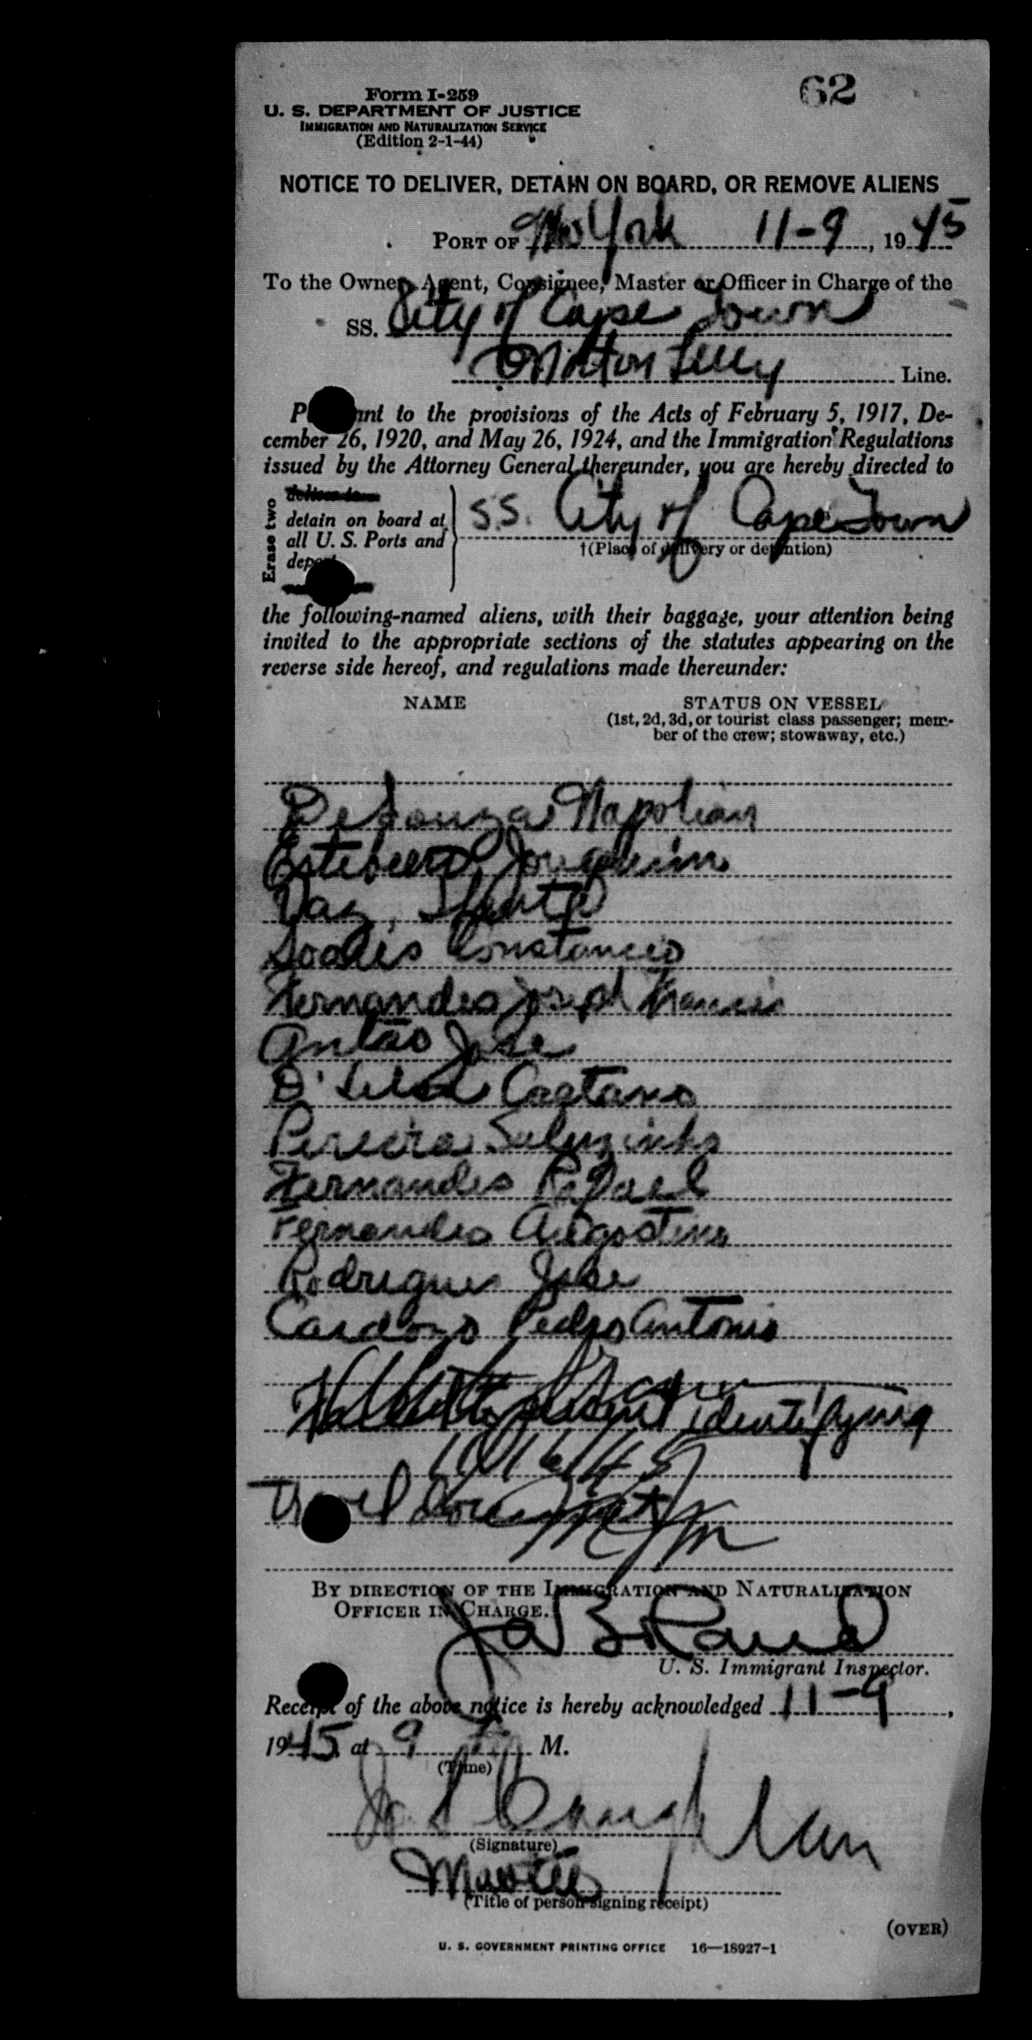 62
Form I-259
U. S. DEPARTMENT OF JUSTICE
IMMIGRATION AND NATURALIZATION SERVICE
(Edition 2-1-44)
NOTICE TO DELIVER, DETAIN ON BOARD, OR REMOVE ALIENS
PORT OF New York 11-9, 1945
To the Owner, Agent, Consignee, Master or Officer in Charge of the
SS. City of Cape Town
Norton Lilly Line.
P nt to the provisions of the Acts of February 5, 1917, De-
cember 26, 1920, and May 26, 1924, and the Immigration Regulations
issued by the Attorney General thereunder, you are hereby directed to
Erase two
detain on board at
all U. S. Ports and
S.S. City of Cape Town
†(Place of delivery or detention)
the following-named aliens, with their baggage, your attention being
invited to the appropriate sections of the statutes appearing on the
reverse side hereof, and regulations made thereunder:
NAME STATUS ON VESSEL
(1st, 2d, 3d, or tourist class passenger; mem-
ber of the crew; stowaway, etc.)
De Souza Napolian
Joaquim
Vaz,
Constancio
Fernandes Joseph Francis
Antao Jose
D' Caetano
Pereira
Fernandes Rafael
Fernandes Agostino
Rodrigues Jose
Cardozo Pedro Antonio
present identifying
10/16/45
Travel Document
BY DIRECTION OF THE IMMIGRATION AND NATURALIZATION
OFFICER IN CHARGE.
U. S. Immigrant Inspector.
Receipt of the above notice is hereby acknowledged 11-9,
1945 at 9 M.
(Time)
(Signature)
Master
(Title of person signing receipt)
(OVER)
U. S. GOVERNMENT PRINTING OFFICE 16—18927-1